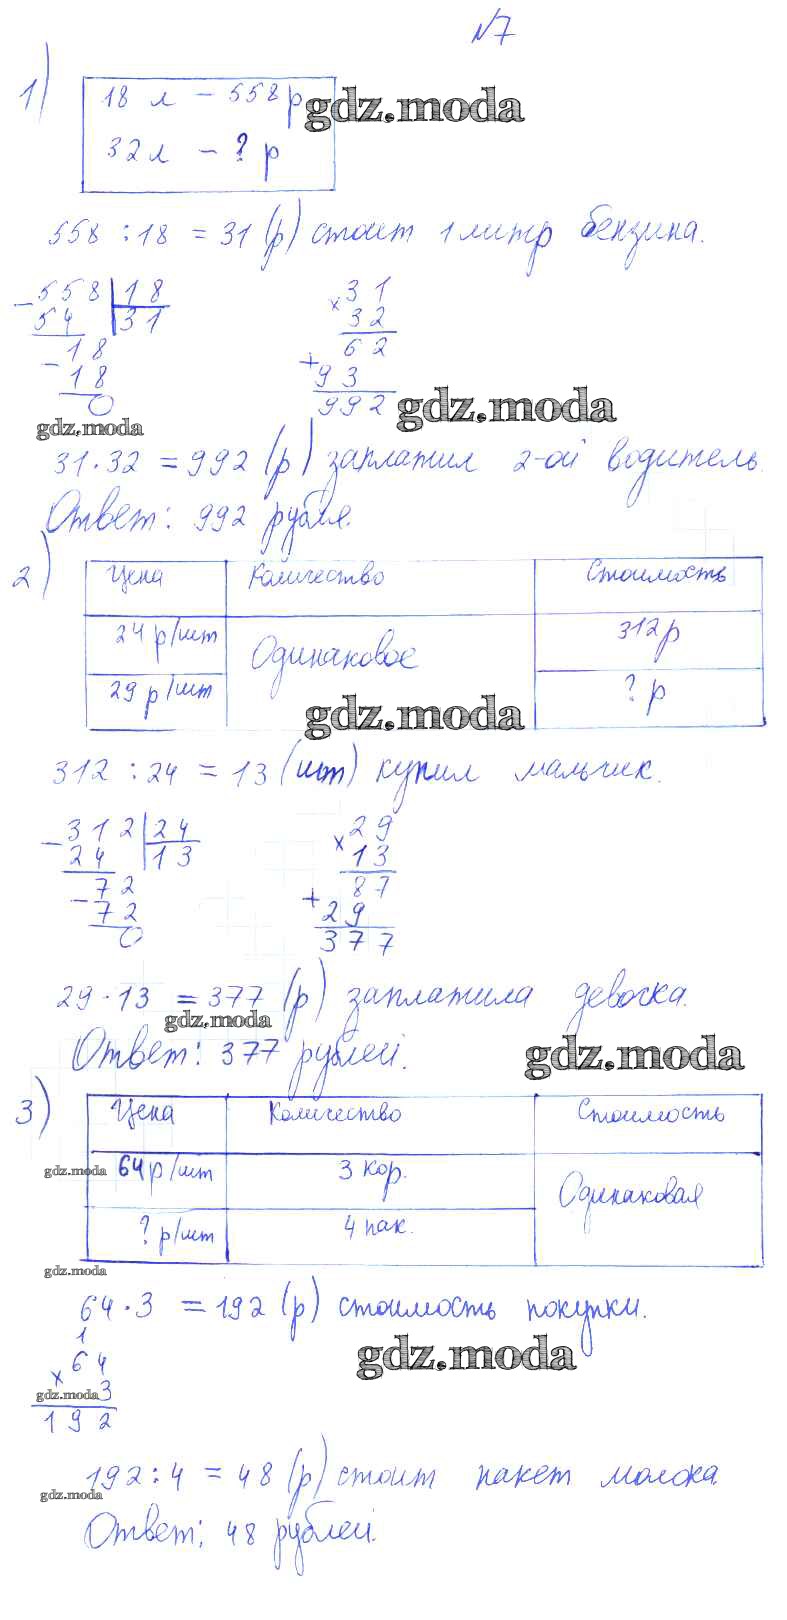 №7
1) 18 л – 558 р gdz.moda
32 л – ? р
558 : 18 = 31 (р) стоит 1 литр бензина.
– 558 | 18 × 31
54 31 32
– 18 62
18 + 93
0 992 gdz.moda
gdz.moda
31 · 32 = 992 (р) заплатил 2-ой водитель.
Ответ: 992 рубля.
2) Цена Количество Стоимость
24 р/шт Одинаковое 312 р
29 р/шт ? р
gdz.moda
312 : 24 = 13 (шт) купил мальчик.
– 312 | 24 × 29
24 13 13
– 72 87
72 + 29
0 377
29 · 13 = 377 (р) заплатила девочка.
gdz.moda
Ответ: 377 рублей. gdz.moda
3) Цена Количество Стоимость
gdz.moda 64 р/шт 3 кор. Одинаковая
? р/шт 4 пак.
gdz.moda
64 · 3 = 192 (р) стоимость покупки.
1
× 64 gdz.moda
gdz.moda 3
192
192 : 4 = 48 (р) стоит пакет молока.
gdz.moda
Ответ: 48 рублей.